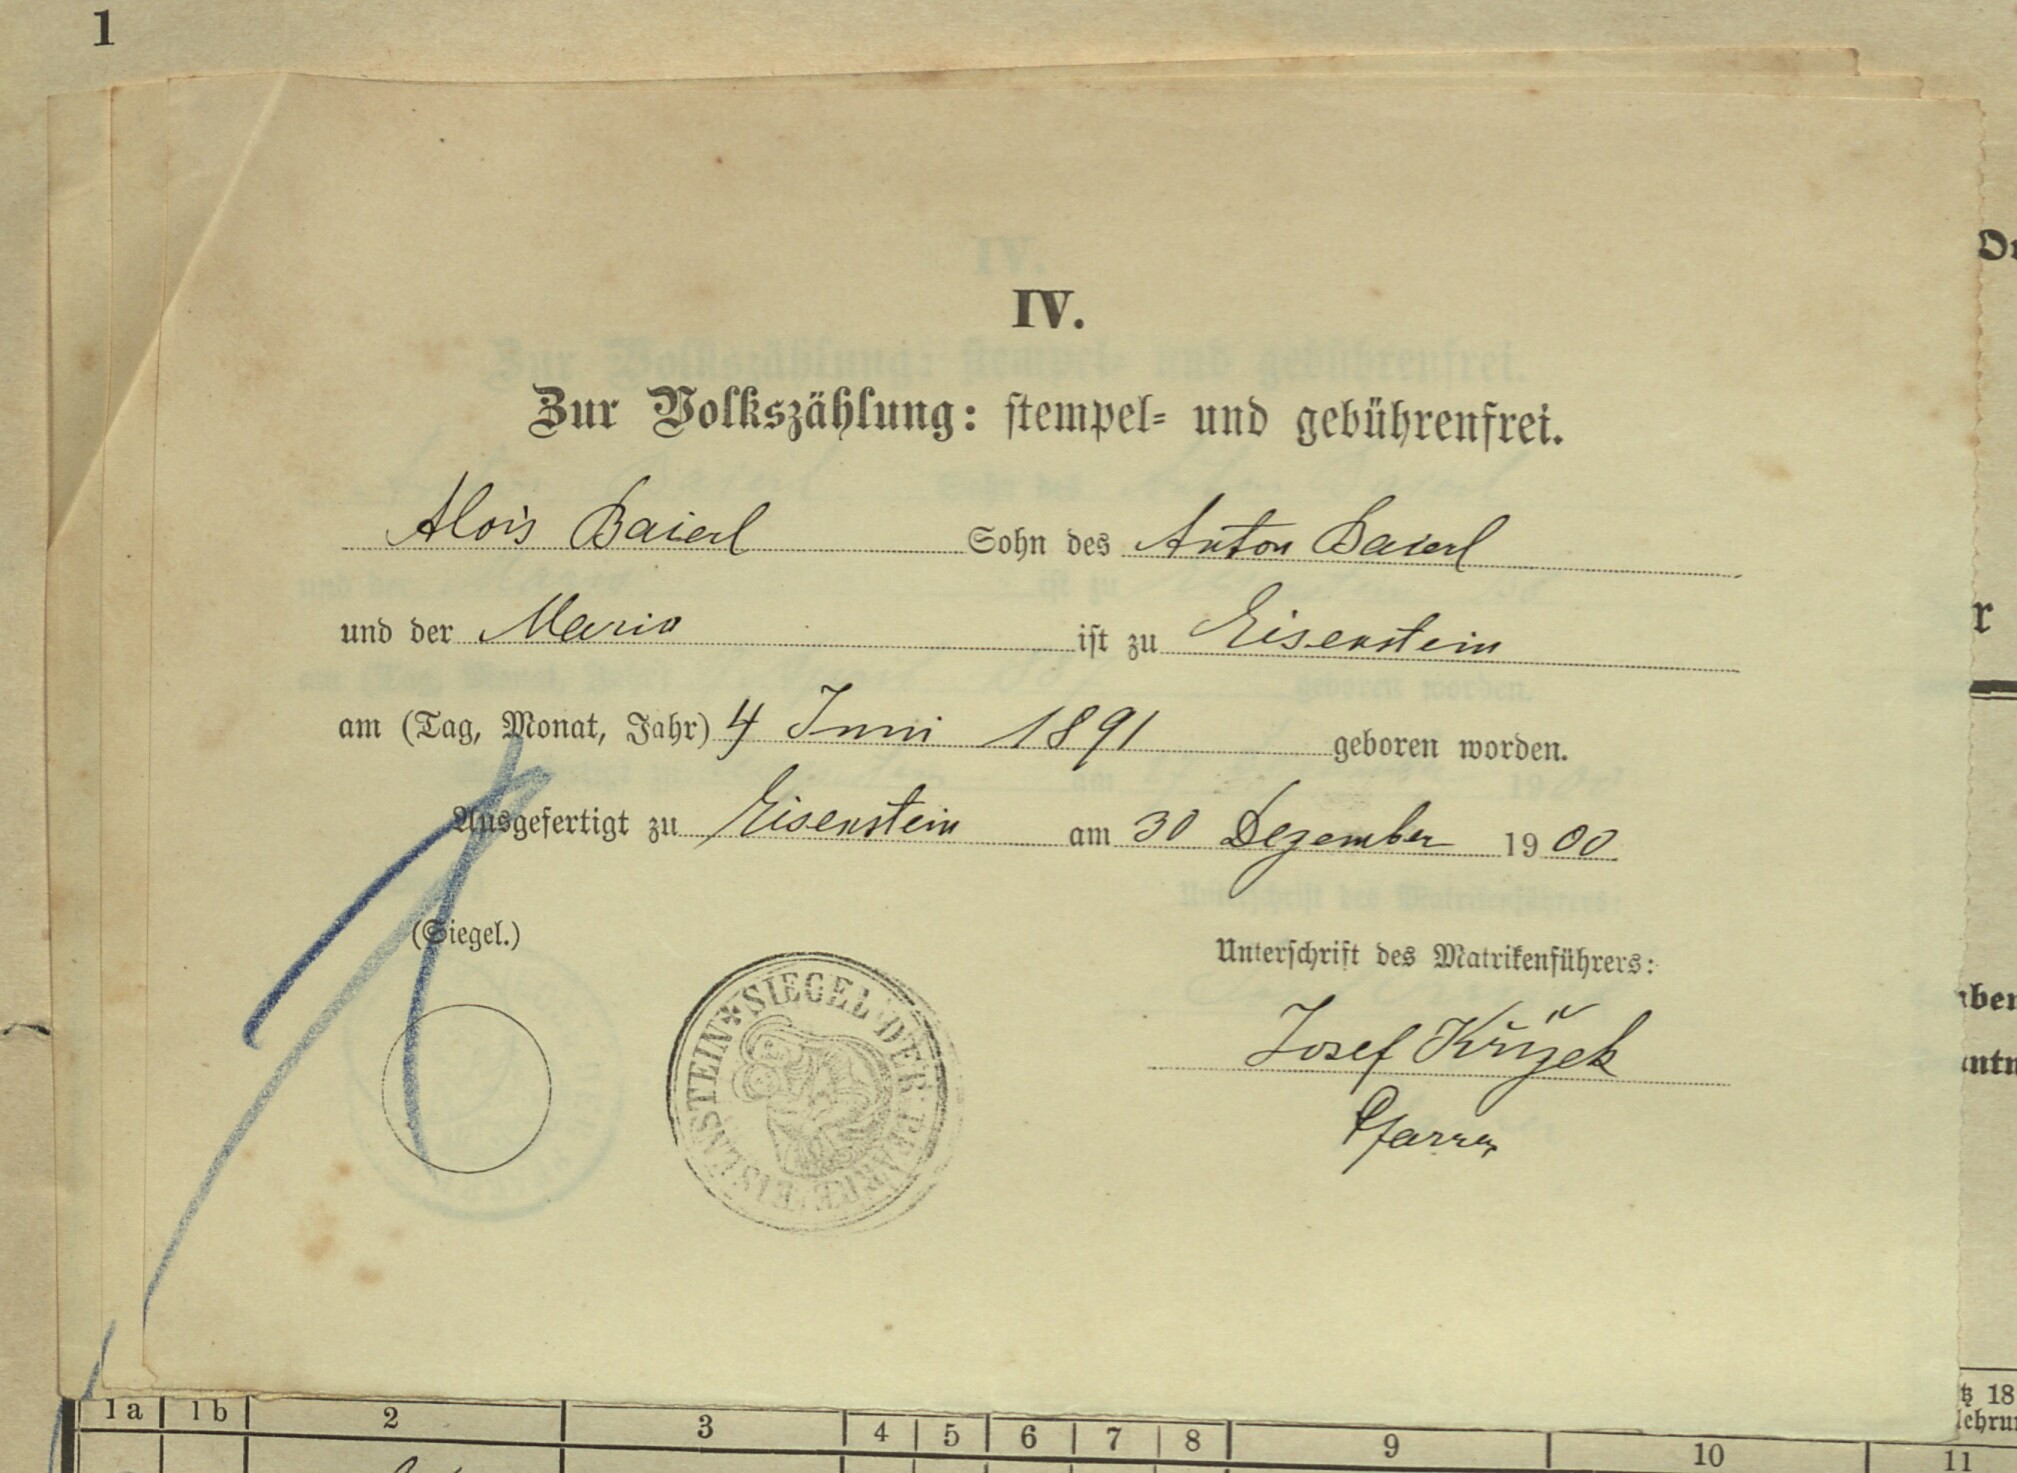 1
IV.
Zur Volkszählung: stempel- und gebührenfrei.
Alois Baierl Sohn des Anton Baierl
und der Maria ist zu Eisenstein
am (Tag, Monat, Jahr) 4 Juni 1891 geboren worden.
Ausgefertigt zu Eisenstein am 30 Dezember 1900
(Siegel.)
SIEGEL DER PFARRE EISENSTEIN
Unterschrift des Matrikenführers:
Josef Křížek
Pfarrer
1a 1b 2 3 4 5 6 7 8 9 10 11